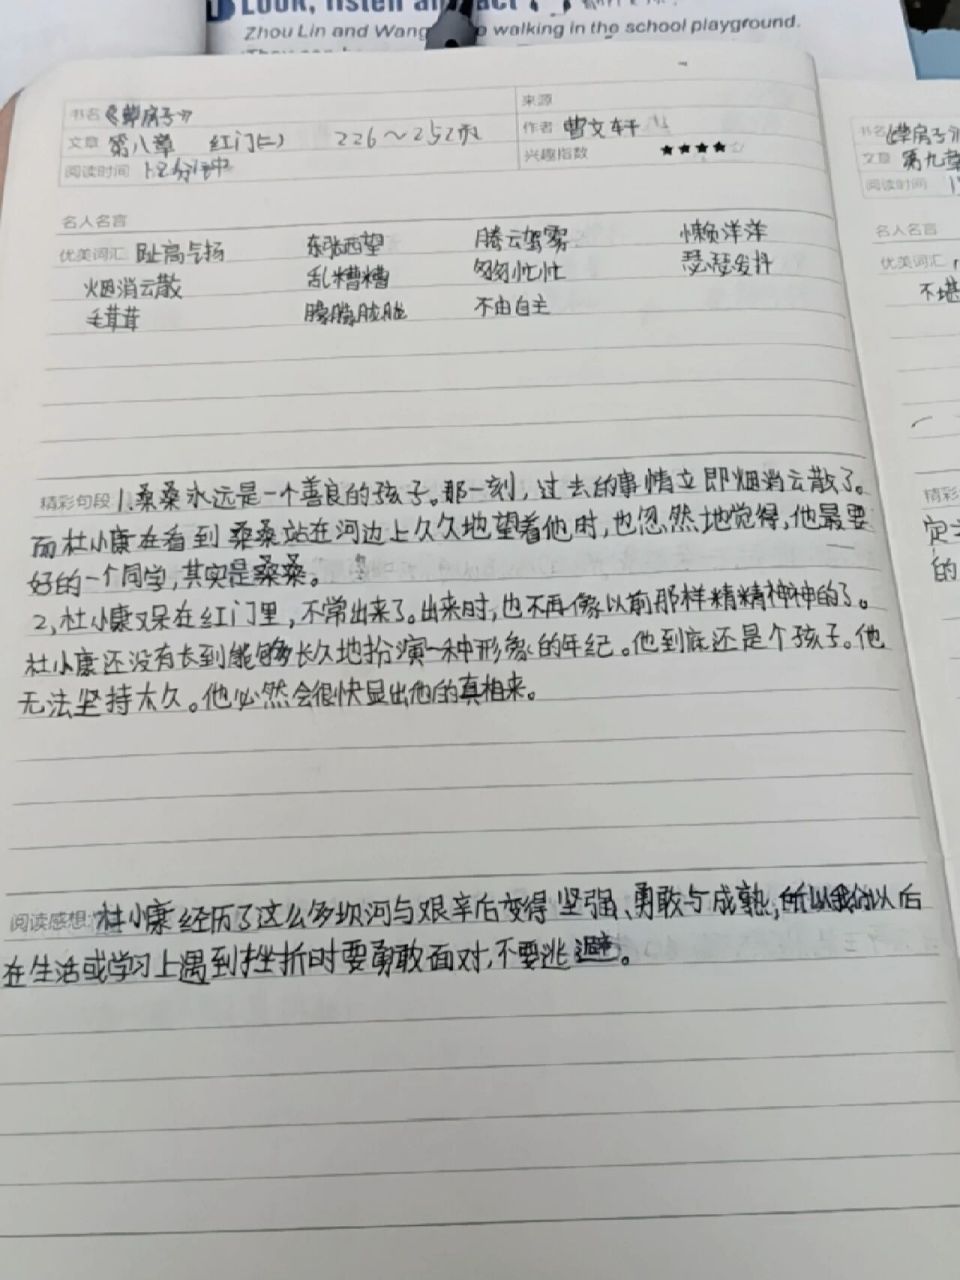 Look, listen and act
Zhou Lin and Wang walking in the school playground.
书名《草房子》
来源
文章 第八章 红门(二) 226～252页
作者 曹文轩
阅读时间 12分钟
兴趣指数 ★★★★☆
名人名言
优美词汇 趾高气扬 东张西望 腾云驾雾 懒洋洋
烟消云散 乱糟糟 匆匆忙忙 瑟瑟发抖
毛茸茸 朦朦胧胧 不由自主
精彩句段 1.桑桑永远是一个善良的孩子。那一刻，过去的事情立即烟消云散了。
而杜小康在看到桑桑站在河边上久久地望着他时，也忽然地觉得，他最要
好的一个同学，其实是桑桑。
2，杜小康又呆在红门里，不常出来了。出来时，也不再像以前那样精精神神的了。
杜小康还没有长到能够长久地扮演一种形象的年纪。他到底还是个孩子。他
无法坚持太久。他必然会很快显出他的真相来。
阅读感想: 杜小康经历了这么多坎坷与艰辛后变得坚强、勇敢与成熟，所以我们以后
在生活或学习上遇到挫折时要勇敢面对，不要逃避。
书名《草房子
文章 第九章
阅读时间
名人名言
优美词汇
精彩
的